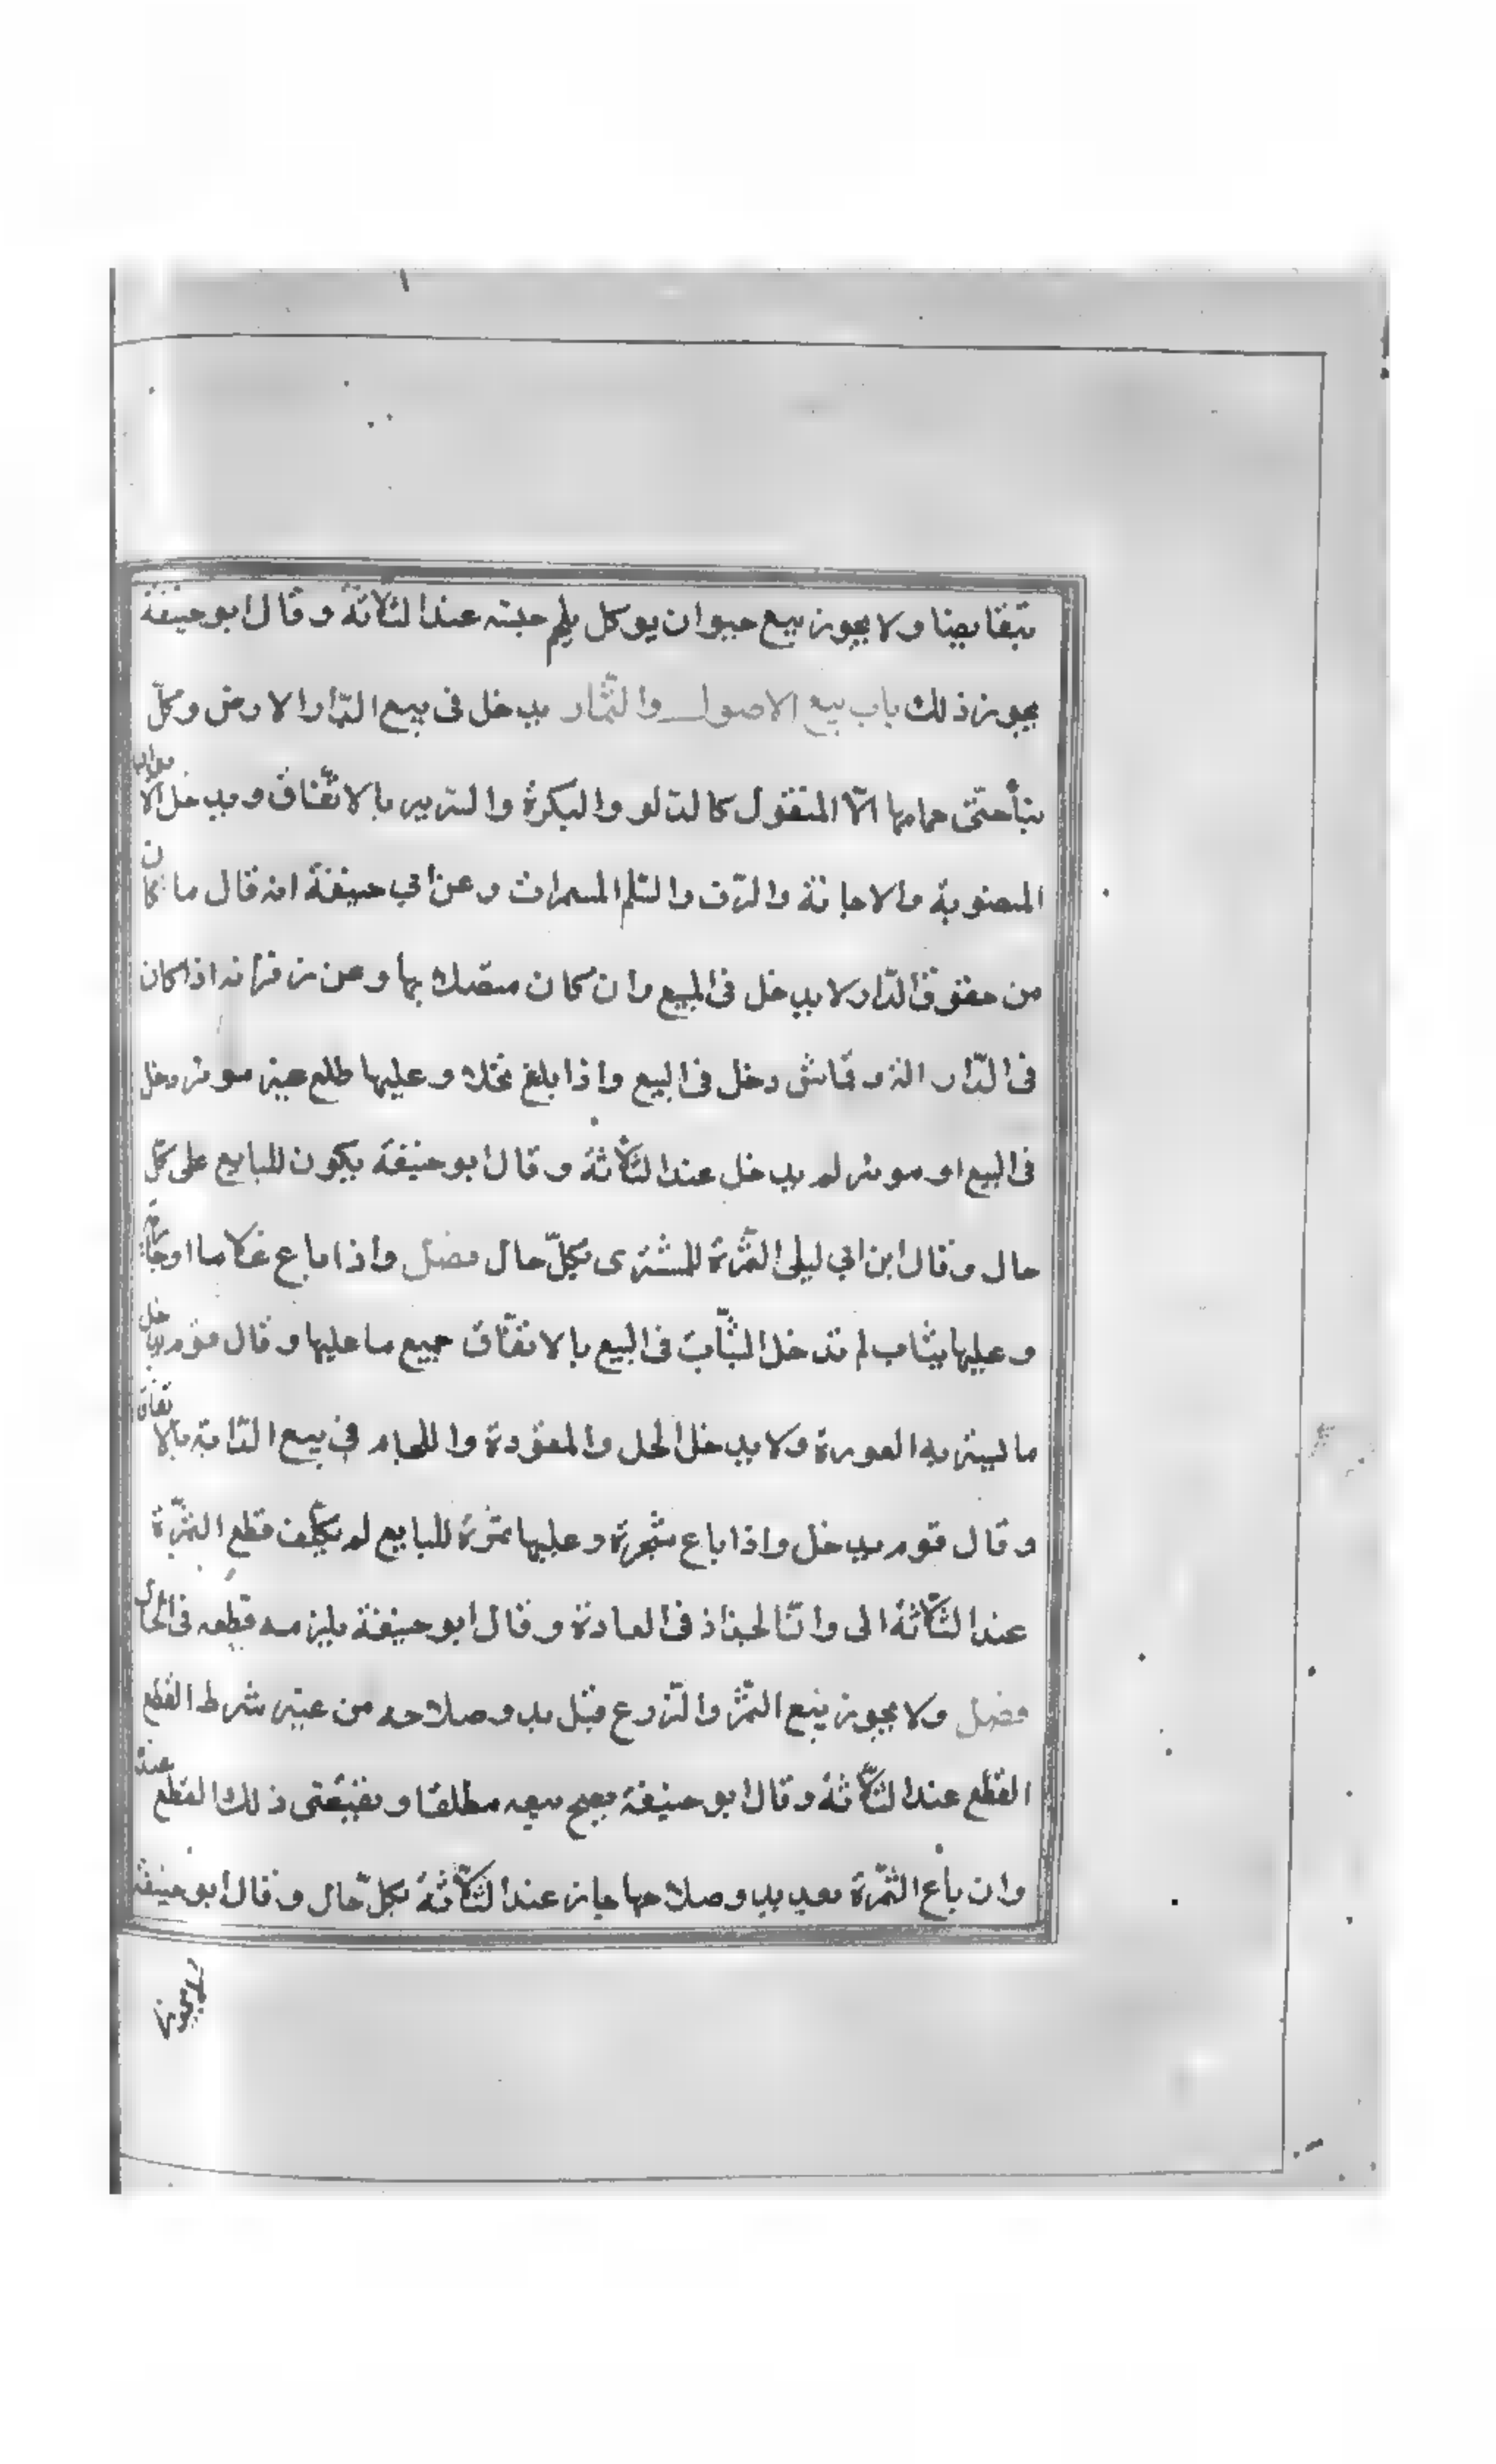 يتقابضا ولا يجوز بيع حيوان يوكل بلحم جنسه عند الثلاثة وقال ابو حنيفة
يجوز ذلك باب بيع الاصول والثمار يدخل في بيع الدّار الارض وكلّ
بنأ حتّى حمامها الّا المنقول كالدلو والبكرة والسرير بالاتّفاق ويدخل الا
المنصوبة والاجانة والرّف والسّلم المسمرات وعن ابي حنيفة انه قال ما كان
من حقوق الدّار لا يدخل في البيع وان كان متصلا بها وعن زفر انه اذا كان
في الدّار الذ وقماش دخل في البيع واذا بلغ نخلا وعليها طلع غير موبر دخل
في البيع او موبر لم يدخل عند الثلاثة وقال ابو حنيفة يكون للبايع على كل
حال وقال ابن ابي ليلى الثمرة للمشترى بكلّ حال فصل واذا باع غلاما او جارية
وعليها ثياب لم تدخل الثياب في البيع بالاتفّاق جميع ما عليها وقال قوم يدخل
ما ليستر به العورة ولا يدخل الحل والمقودة واللجام في بيع الدّابة بالاتفاق
وقال قوم يدخل واذا باع شجرة وعليها ثمرة للبايع لم يكلّف قطع الثمرة
عند الثلاثة الى وان الجذاذ في العادة وقال ابو حنيفة يلزمه قطعه في الحال
فصل ولا يجوز بيع الثمر والزرع قبل بدو صلاحه من غير شرط القطع
القطع عند الثلاثة وقال ابو حنيفة يصح بيعه مطلقا ويقتضى ذلك القطع عنده
وان باع الثمرة بعد بدو صلاحها جاز عند الثلاثة بكلّ حال وقال ابو حنيفة
لا يجوز